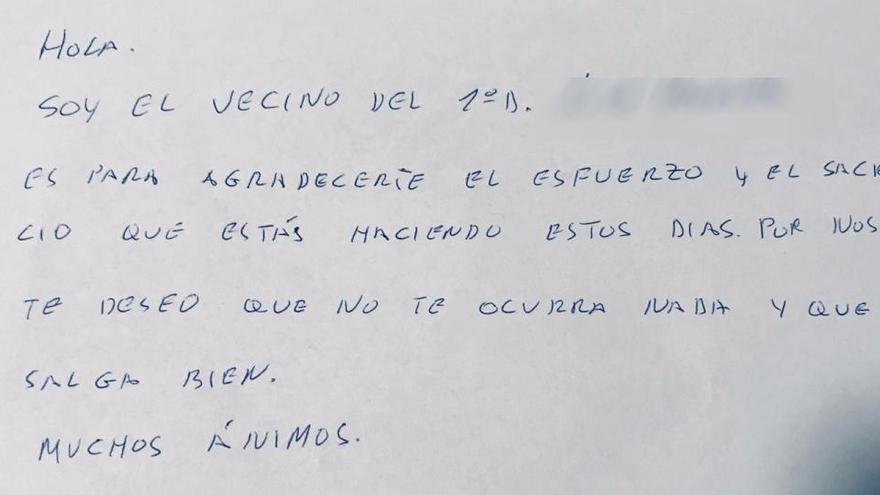 HOLA.
SOY EL VECINO DEL 1ºD.
ES PARA AGRADECERTE EL ESFUERZO Y EL SACRI
CIO QUE ESTÁS HACIENDO ESTOS DIAS. POR NOS
TE DESEO QUE NO TE OCURRA NADA Y QUE
SALGA BIEN.
MUCHOS ÁNIMOS.